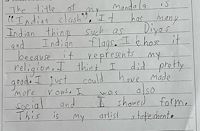 The title of my Mandala is
"Indian clash". It has many
Indian things such as Diyas
and Indian flags. I chose it
because it represents my
religion. I think I did pretty
good. I just could have made
more room. I was also
social and I shared form.
This is my artist statement.